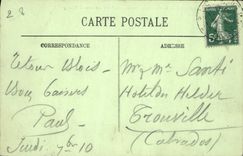 28
CARTE POSTALE
CORRESPONDANCE
ADRESSE
5c
Retour Blois
Bons Baisers
Paul
Jeudi 7bre 10
Mr & Mme Santi
Hotel du Helder
Trouville
(Calvados)